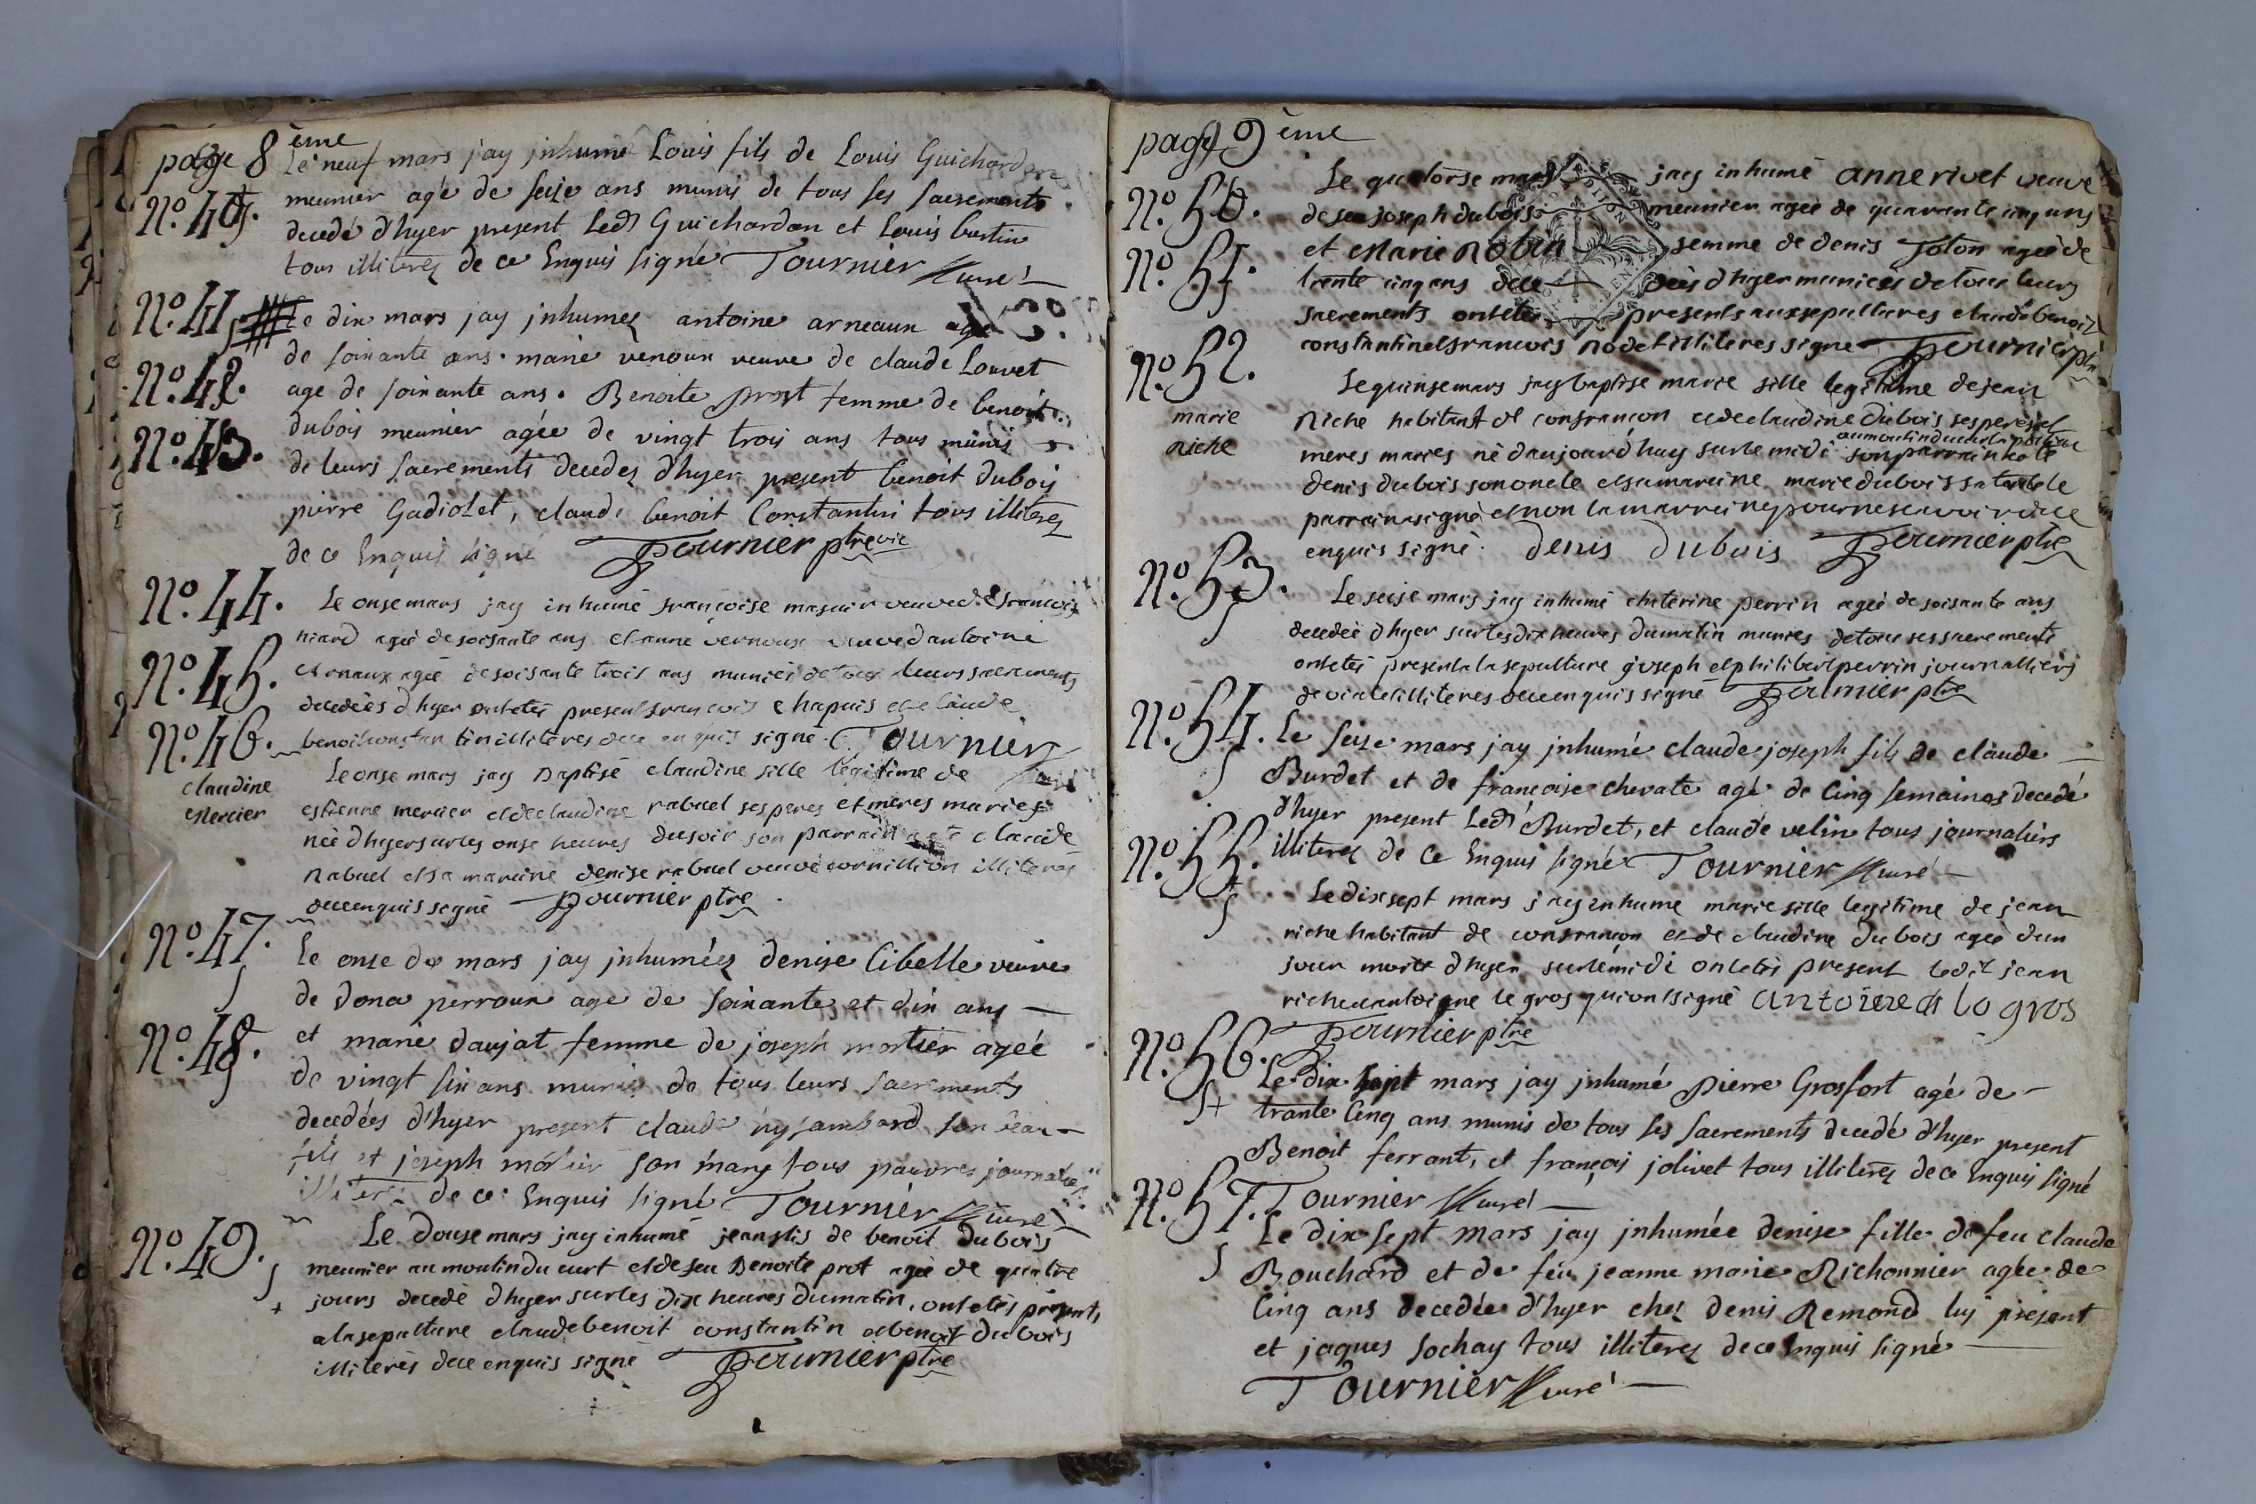 page 8 ème
Le neuf mars jay jnhumé Louis fils de Louis Guichardon
No. 40. meunier agé de seize ans munis de tous ses sacrements
decedé d'hyer present Ledt Guichardon et Louis bertin
tous illiterez de ce Enquis signé Tournier curé
No. 41 Le dix mars jay jnhumez antoine arneaux agé
de soixante ans. marie venoux veuve de claude Louvet
No. 42. age de soixante ans. Benoite prost femme de benoit
No. 43. dubois meunier agée de vingt trois ans tous munis
de leurs sacrements decedez d'hyer present benoit dubois
pierre Gadiolet, claude benoit Constantin tous illiterez
de ce Enquis signé Tournier ptre vic
No. 44. Le onse mars jay inhumé françoise masuir veuve de françois
niard ageé de soisante ans et anne vernoux veuve d'antoine
No. 45. arnaux ageé de soisante trois ans munies de tous leurs sacrements
decedeés d'hyer ont eté present francois chapuis et claude
No. 46. benoit constantin illiteres de ce enquis signé Tournier curé
claudine mercier
Le onse mars jay Baptisé claudine fille legitime de
estienne mercier et de claudine rabuel ses peres et meres mariés
née d'hyer sur les onse heures du soir son parrain a eté claude
Rabuel et sa maraine denise rabuel veuve cornillion illiteres
de ce enquis signé Tournier ptre
No. 47. Le onse de mars jay jnhumées denise Cibelle veuve
de dona perroux age de soixante et dix ans
No. 48. et marie daujat femme de joseph mortier agée
de vingt six ans munies de tous leurs sacrements
decedées d'hyer present claude nysambard son beau
fils et joseph mortier son mary tous pauvres journaliers
illiterez de ce Enquis signé Tournier curé
No. 49. Le douse mars jay inhumé jean fils de benoit Dubois
meunier au moulin du curt et de feu Benoite prot ageé de quatre
jours decedé d'hyer sur les dix heures du matin, ont etés présents
a la sepulture claude benoit constantin et benoit dubois
illiterés de ce enquis signé Tournier ptre
page 9 ème
No. 50. Le quatorse mars jay inhumé anne rivet veuve
de feu joseph dubois meunier ageé de quarante cinq ans
No. 51. et Marie Robin femme de denis Joton ageé de
trente cinq ans decedeés d'hyer munies de tous leurs
sacrements ont eté presents aux sepultures claude benoit
No. 52. constantin et francois nodet illiteres signé Tournier ptre
marie Riche
Le quinse mars jay baptise marie fille legitime de jean
Riche habitant de confrancon et de claudine Dubois ses peres et
meres mariés né d'aujourd'huy sur le midi au moulin du curt la paroisse son parrain a eté
denis dubois son oncle et sa maraine marie dubois sa tante le
parrain a signé et non la marraine pour ne scavoir de ce
enquis signé. denis dubois Tournier ptre
No. 53. Le seise mars jay inhumé chaterine perrin ageé de soisante ans
decedée d'hyer sur les dix heures du matin munies de tous ses sacrements
ont etés present a la sepulture joseph et philibert perrin journalliers
illiteres de ce enquis signé Tournier ptre
No. 54. Le seize mars jay jnhumé claude joseph fils de claude
Burdet et de françoise chevate agé de Cinq semaines decedé
d'hyer present Ledt Burdet, et claude velin tous journaliers
No. 55. illiterez de ce Enquis signé Tournier curé
Le dix sept mars jay inhume marie fille legitime de jean
riche habitant de confrancon et de claudine Dubois ageé d'un
jour morte d'hyer sur le midi ont etés present ledit jean
riche et antoine le gros qui ont signé antoine le gros
Tournier ptre
No. 56. Le dix sept mars jay jnhumé pierre Grosfort agé de
trante Cinq ans munis de tous ses sacrements decedé d'hyer present
Benoit ferrant, et françois jolivet tous illiterez de ce Enquis signé
No. 57. Tournier curé
Le dix sept mars jay jnhumée denise fille de feu claude
Bouchard et de feu jeanne marie Richonnier agée de
Cinq ans decedée d'hyer chez denis Remond luy present
et jaques sochay tous illiterez de ce Enquis signé
Tournier curé